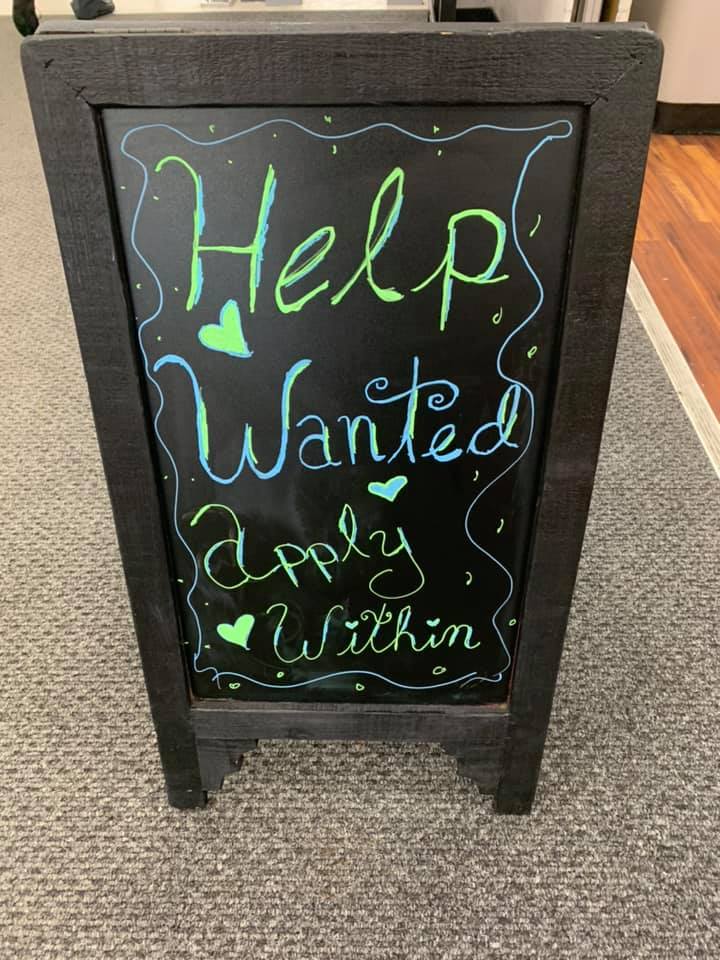 Help
Wanted
apply
Within